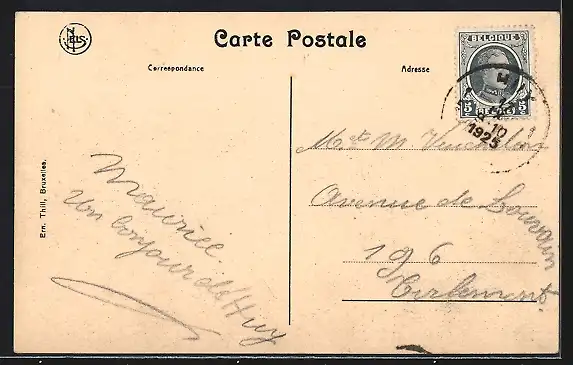 NELS
Carte Postale
Correspondance
Adresse
BELGIQUE
5 5
1925
Ern. Thill, Bruxelles.
Maurice.
Un bonjour de Huy
M. et M
Avenue de Louvain
196
Tirlemont